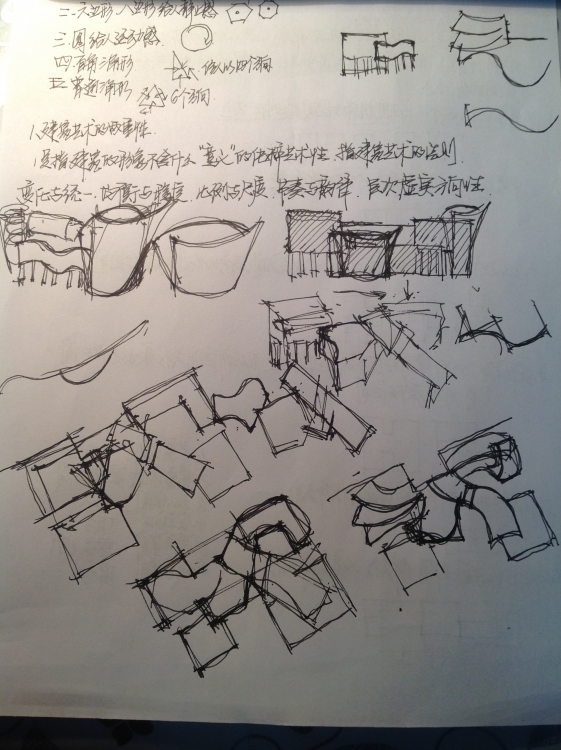 二.六边形.八边形给人静感
三.圆给人运动感.
四.直角三角形
做以四个方向
五.普通三角形
6个方向.
1.建筑艺术的
1.是指建筑的形象不含什么“意心”的纯粹艺术性.指建筑艺术的法则.
变化与统一.均衡与稳定.比例与尺度.节奏与韵律.层次虚实方向性.